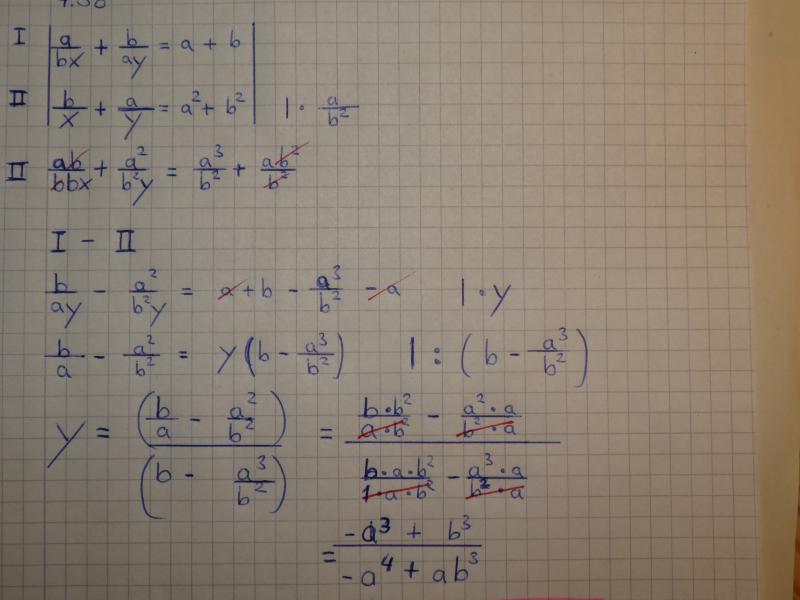 I | a/bx + b/ay = a + b |
II | b/x + a/y = a² + b² | | · a/b²
II ab/bbx + a²/b²y = a³/b² + ab²/b²
I - II
b/ay - a²/b²y = a + b - a³/b² - a | · y
b/a - a²/b² = y (b - a³/b²) | : (b - a³/b²)
y = (b/a - a²/b²) / (b - a³/b²) = (b·b²/a·b² - a²·a/b²·a) / (b·a·b²/1·a·b² - a³·a/b²·a)
= (-a³ + b³) / (-a⁴ + ab³)